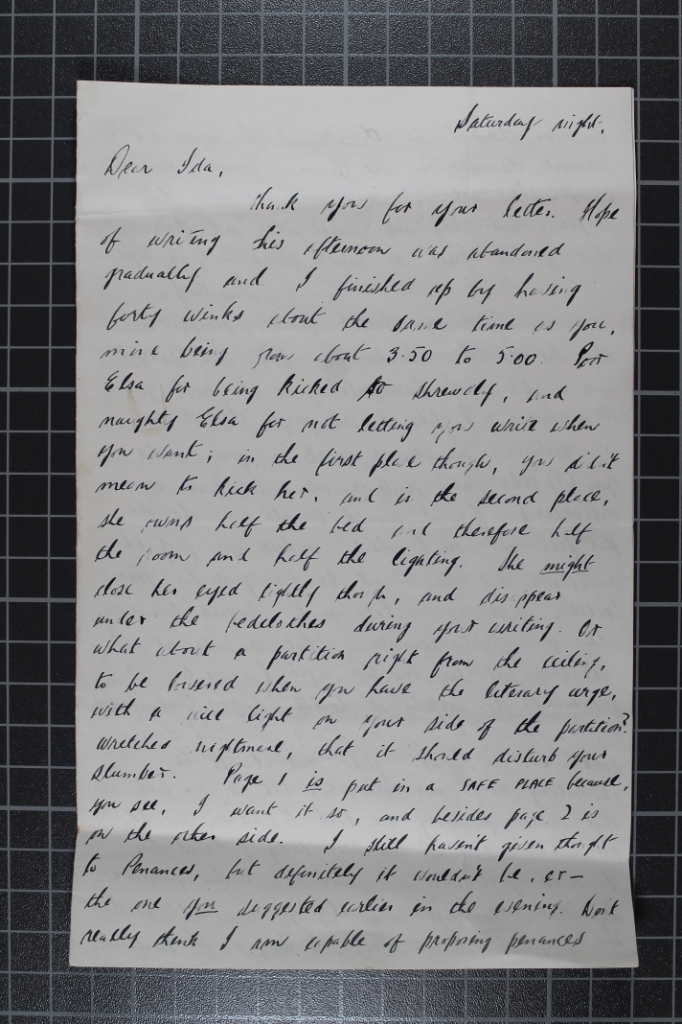 Saturday night.
Dear Ida,
Thank you for your letter. Hope
of writing this afternoon was abandoned
gradually and I finished up by having
forty winks about the same time as you,
mine being from about 3.50 to 5.00. Poor
Elsa for being kicked so shrewdly, and
naughty Elsa for not letting you write when
you want; in the first place though, you didn't
mean to kick her, and in the second place,
she owns half the bed and therefore half
the room and half the lighting. She might
close her eyes tightly though, and disappear
under the bedclothes during your writing. Or
what about a partition right from the ceiling,
to be lowered when you have the literary urge,
with a nice light on your side of the partition?
Wretched nightmare, that it should disturb your
slumber. Page 1 is put in a SAFE PLACE because,
you see, I want it so, and besides page 2 is
on the other side. I still haven't given thought
to Penances, but definitely it wouldn't be, er—
the one you suggested earlier in the evening. Don't
really think I am capable of proposing penances